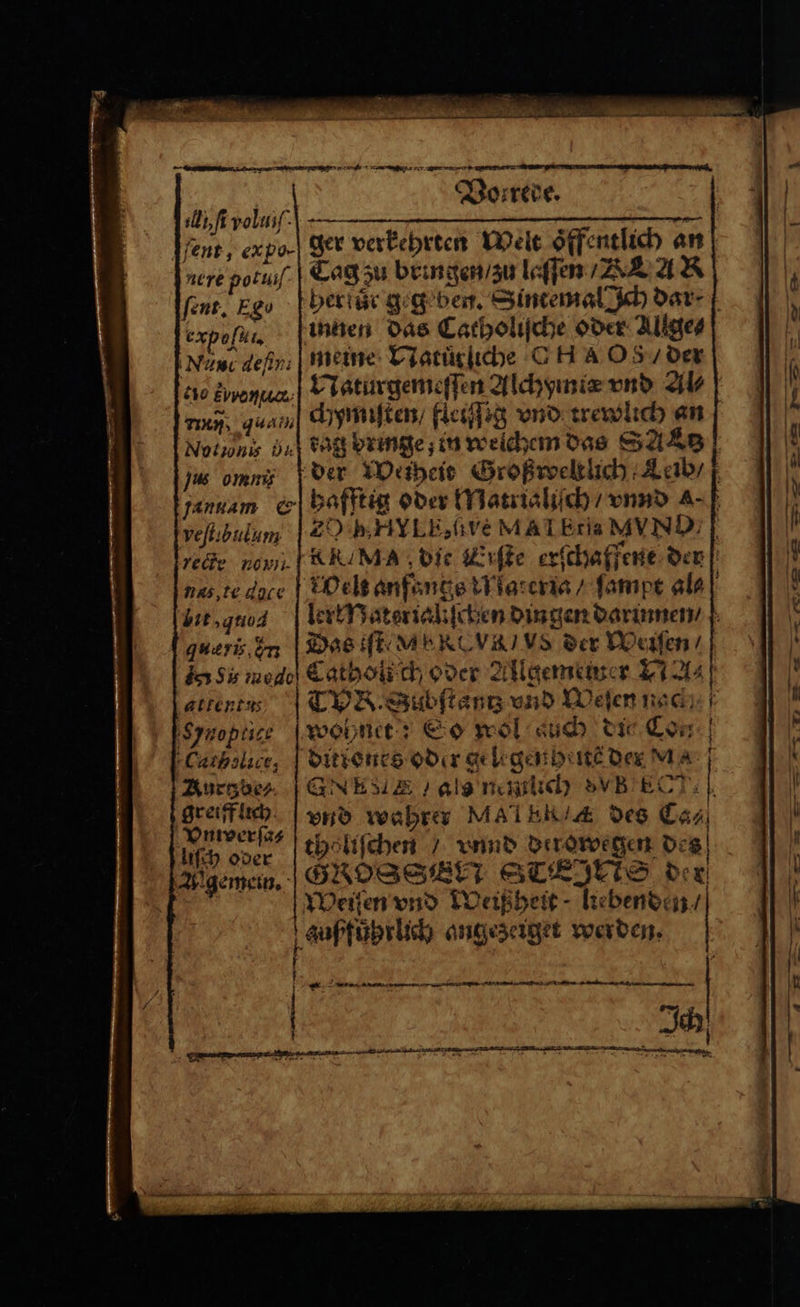 Vorrede.
illi, si voluis-
sent, expo-
nere potuis-
sent, Ego
exposui.
Nunc defini-
tio ἐννοημα-
τικὴ, quam
Notionis
jus omnis
januam &
vestibulum
recte
nas, te duce
bit, quod
quæris,
Sis modo
attentus
Synoptice
Catholice,
Kurtzbe-
greifflich
Vniversa-
lisch oder
Algemein.
ger verkehrten Welt öffentlich an
Tag zu bringen/zu lassen/KLAR
herfür gegeben. Sintemal Ich dar-
innen das Catholische oder Allge-
meine Natürliche CHAOS/der
Naturgemessen Alchymiæ vnd Al-
chymisten/ fleissig vnd trewlich an
tag bringe; in welchem das SALTZ
der Weißheit Großweltlich Leib/
hafftig oder Matrialisch/vnnd A-
ZOth. HYLE, sive MATEria MVND:
die Erste erschaffene der
Welt anfangs Materia/ sampt al-
ler Materialischen dingen darinnen/
Das ist: MERCVRIVS der Weisen/
Catholisch oder Allgemeiner NA-
TVR. Substantz vnd Wesen nach
wohnet: So wol auch die Con-
ditiones oder gelegenheitē der MA-
GNESIÆ / als nemlich SVBIECT.
vnd wahrer MATERIÆ des Ca-
tholischen / vnnd derowegen des
GROSSEN STEINS der
Weisen vnd Weißheit-liebenden/
außführlich angezeiget werden.
Ich